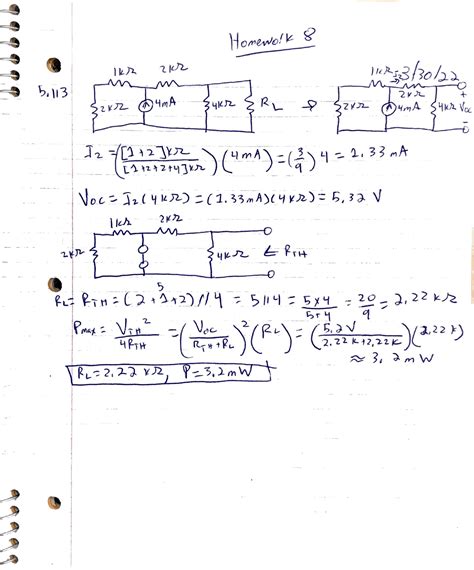 Homework 8
3/30/22
5.113
1kΩ 2kΩ 1kΩ 2kΩ
2kΩ 4mA 4kΩ RL ⇒ 2kΩ 4mA 4kΩ VOC
I2 = ([1+2]kΩ / [1+2+2+4]kΩ)(4mA) = (3/9) 4 = 1.33 mA
VOC = I2(4kΩ) = (1.33mA)(4kΩ) = 5.32 V
1kΩ 2kΩ
2kΩ 4kΩ ⇐ RTH
5
RL = RTH = (2+1+2)//4 = 5//4 = 5x4/5+4 = 20/9 = 2.22 kΩ
Pmax = VTH²/4RTH = (VOC/RTH+RL)²(RL) = (5.2V/2.22k+2.22k)(2.22k)
≈ 3.2mW
RL = 2.22 kΩ, P = 3.2mW